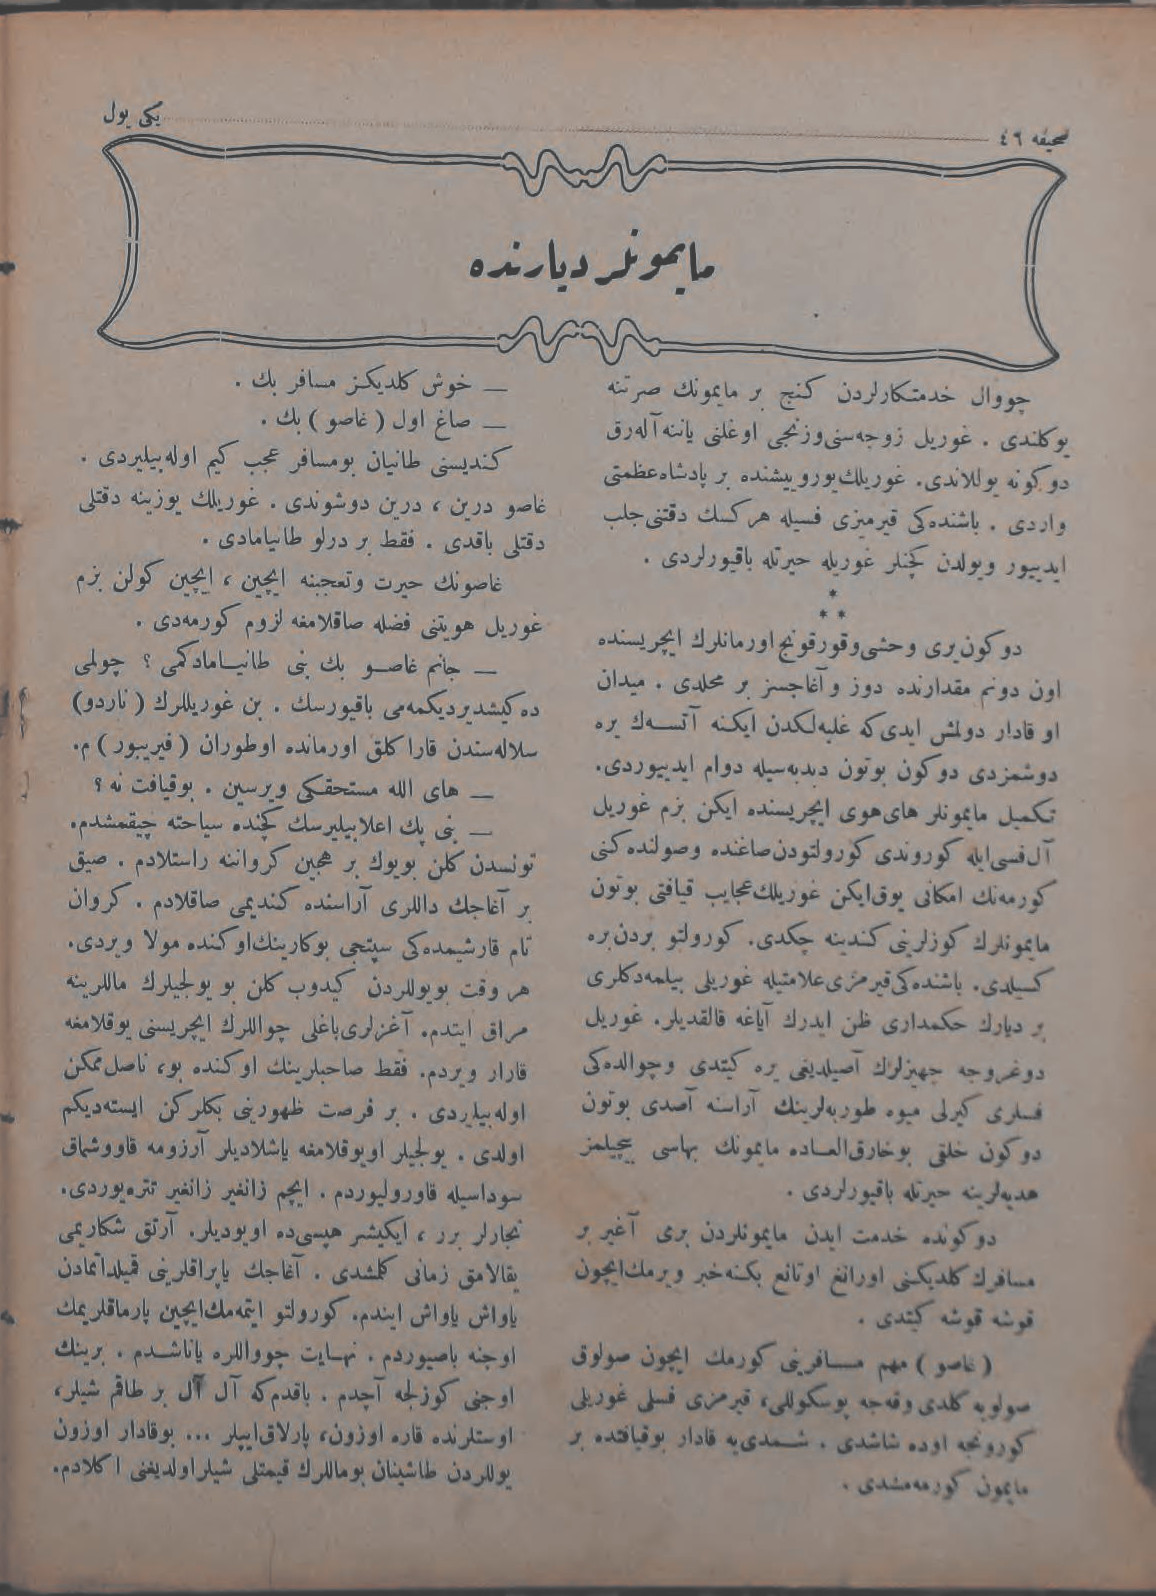 صحیفه ٤٦
یکی یول
مایمونلر دیارنده
چووال خدمتکارلردن کنج بر مایمونك صرتنه
یوکلندی . غوریل زوجه‌سنی وزنجی اوغلنی یاننه آله‌رق
دوکونه یوللاندی. غوریلك یوروییشنده بر پادشاه عظمتی
واردی . باشنده‌کی قیرمیزی فسیله هرکسك دقتنی جلب
ایدییور ویولدن کچنلر غوریله حیرتله باقیورلردی .
*
* *
دوکون یری وحشی وقورقونج اورمانلرك ایچریسنده
اون دونم مقدارنده دوز وآغاجسز بر محلدی . میدان
او قادار دولمش ایدی که غلبه‌لکدن ایکنه آتسه‌ك یره
دوشمزدی دوکون بوتون دبدبه‌سیله دوام ایدییوردی.
تکمیل مایمونلر های هوی ایچریسنده ایکن بزم غوریل
آل فسی ایله کوروندی کورولتودن صاغنده وصولنده کنی
کورمه‌نك امکانی یوق ایکن غوریلك عجایب قیافتی بوتون
مایمونلرك کوزلرینی کندینه چکدی. کورولتو بردن بره
کسیلدی. باشنده‌کی قیرمزی علامتیله غوریلی بیلمه‌دکلری
بر دیارك حکمداری ظن ایدرك آیاغه قالقدیلر. غوریل
دوغروجه جهیزلرك آصیلدیغی یره کیتدی وچوالده‌کی
فسلری کیرلی میوه طوربه‌لرینك آراسنه آصدی بوتون
دوکون خلقی بوخارق العاده مایمونك بهاسی بیچیلمز
هدیه‌لرینه حیرتله باقیورلردی .
دوکونده خدمت ایدن مایمونلردن بری آغیر بر
مسافرك کلدیکنی اورانغ اوتانغ بکنه خبر ویرمك ایچون
قوشه قوشه کیتدی .
( غاصو ) مهم مسافرینی کورمك ایچون صولوق
صولویه کلدی وقه‌جه پوسکوللی، قیرمزی فسلی غوریلی
کورونجه اوده شاشدی . شمدی‌یه قادار بوقیافتده بر
مایمون کورمه‌مشدی .
— خوش کلدیکز مسافر بك .
— صاغ اول ( غاصو ) بك .
کندیسنی طانیان بومسافر عجب کیم اوله‌بیلیردی .
غاصو درین ، درین دوشوندی . غوریلك یوزینه دقتلی
دقتلی باقدی . فقط بر درلو طانیامادی .
غاصونك حیرت وتعجبنه ایچین ، ایچین کولن بزم
غوریل هویتنی فضله صاقلامغه لزوم کورمه‌دی .
— جانم غاصو بك بنی طانیامادکمی ؟ چولمی
ده‌کیشدیردیکمه‌می باقیورسك . بن غوریللرك ( ناردو )
سلاله‌سندن قاراکلق اورمانده اوطوران ( فیریبور ) م.
— های الله مستحقکی ویرسین . بوقیافت نه ؟
— بنی پك اعلا بیلیرسك کچنده سیاحته چیقمشدم.
تونسدن کلن بویوك بر هجین کرواننه راستلادم . صیق
بر آغاجك داللری آراسنده کندیمی صاقلادم . کروان
تام قارشیمده‌کی سپتجی بوکارینك اوکنده مولا ویردی.
هر وقت بویوللردن کیدوب کلن بو یولجیلرك ماللرینه
مراق ایتدم. آغزلری باغلی چواللرك ایچریسنی یوقلامغه
قارار ویردم. فقط صاحبلرینك اوکنده بو، ناصل ممکن
اوله‌بیلیردی . بر فرصت ظهورینی بکلرکن ایسته‌دیکم
اولدی . یولجیلر اویوقلامغه باشلادیلر آرزومه قاووشماق
سوداسیله قاورولیوردم . ایچم زانغیر زانغیر تتره‌یوردی.
تجارلر برر ، ایکیشر هپسی‌ده اویودیلر. آرتق شکاریمی
یقالامق زمانی کلمشدی . آغاجك یاپراقلرینی قمیلداتمادن
یاواش یاواش ایندم. کورولتو ایتمه‌مك ایچین پارماقلریمك
اوجنه باصیوردم . نهایت چوواللره یاناشدم . برینك
اوجنی کوزلجه آچدم . باقدم که آل آل بر طاقم شیلر،
اوستلرنده قاره اوزون، پارلاق ایپلر ... بوقادار اوزون
یوللردن طاشینان بوماللرك قیمتلی شیلر اولدیغنی اکلادم.